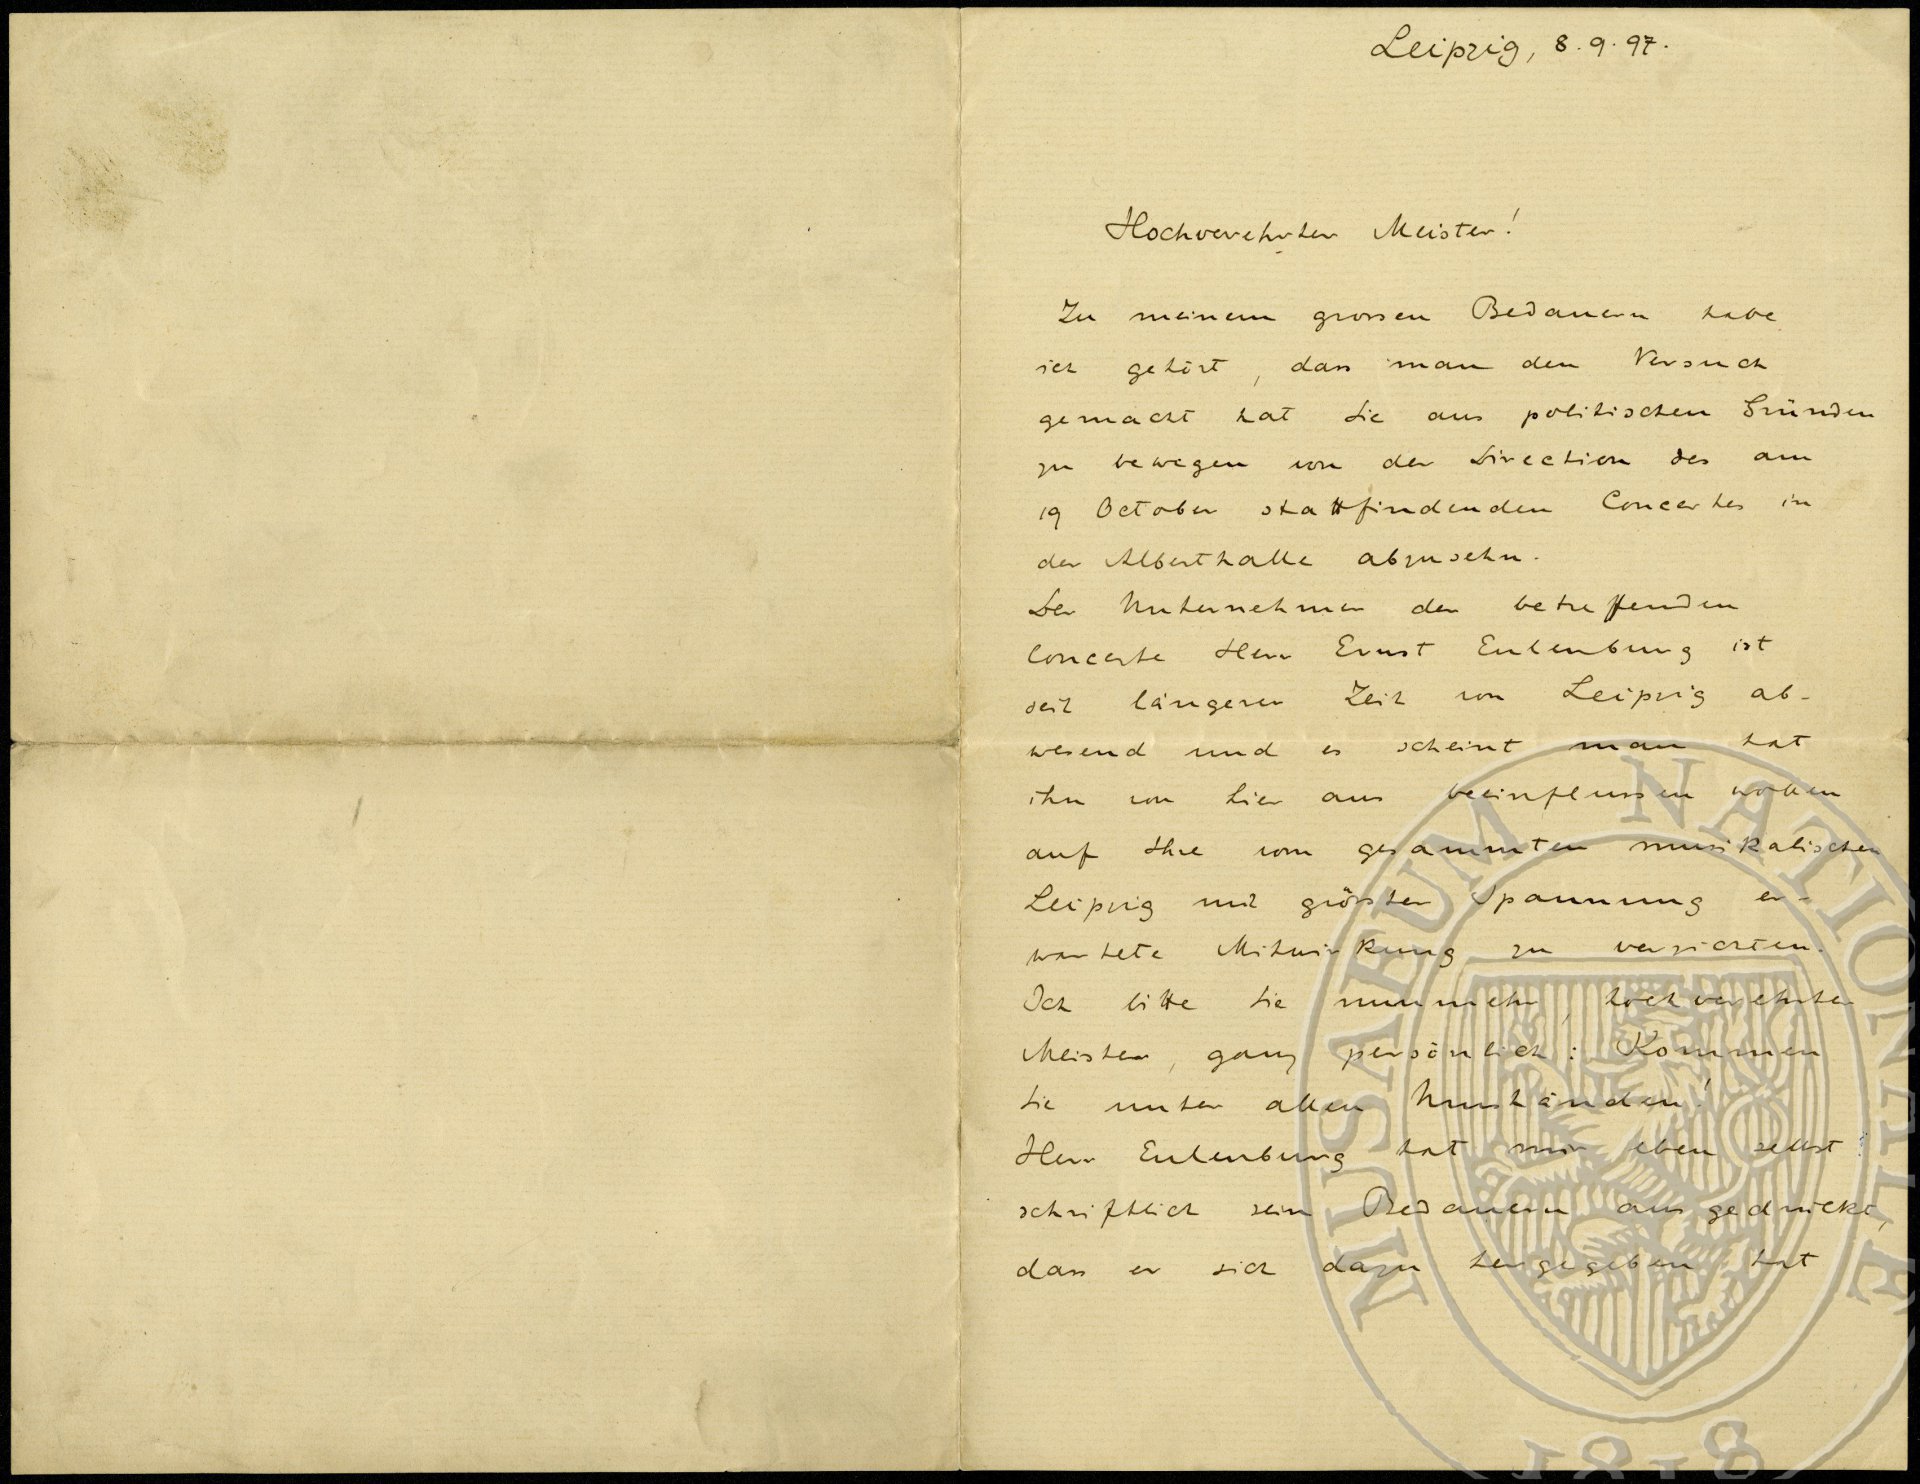 Leipzig, 8. 9. 97.
Hochverehrter Meister!
Zu meinem grossen Bedauern habe
ich gehört, dass man den Versuch
gemacht hat Sie aus politischen Gründen
zu bewegen von der Direction des am
19 October stattfindenden Concertes in
der Alberthalle abzusehn.
Der Unternehmer der betreffenden
Concerte Herr Ernst Eulenburg ist
seit längerer Zeit von Leipzig ab-
wesend und es scheint man hat
ihn von hier aus beeinflussen wollen
auf Ihre vom gesammten musikalischen
Leipzig mit grösster Spannung er-
wartete Mitwirkung zu verzichten.
Ich bitte Sie nunmehr, hochverehrter
Meister, ganz persönlich: Kommen
Sie unter allen Umständen!
Herr Eulenburg hat mir eben selbst
schriftlich sein Bedauern ausgedrückt,
dass er sich dazu hergegeben hat
MUSAEUM NATIONALE
1818